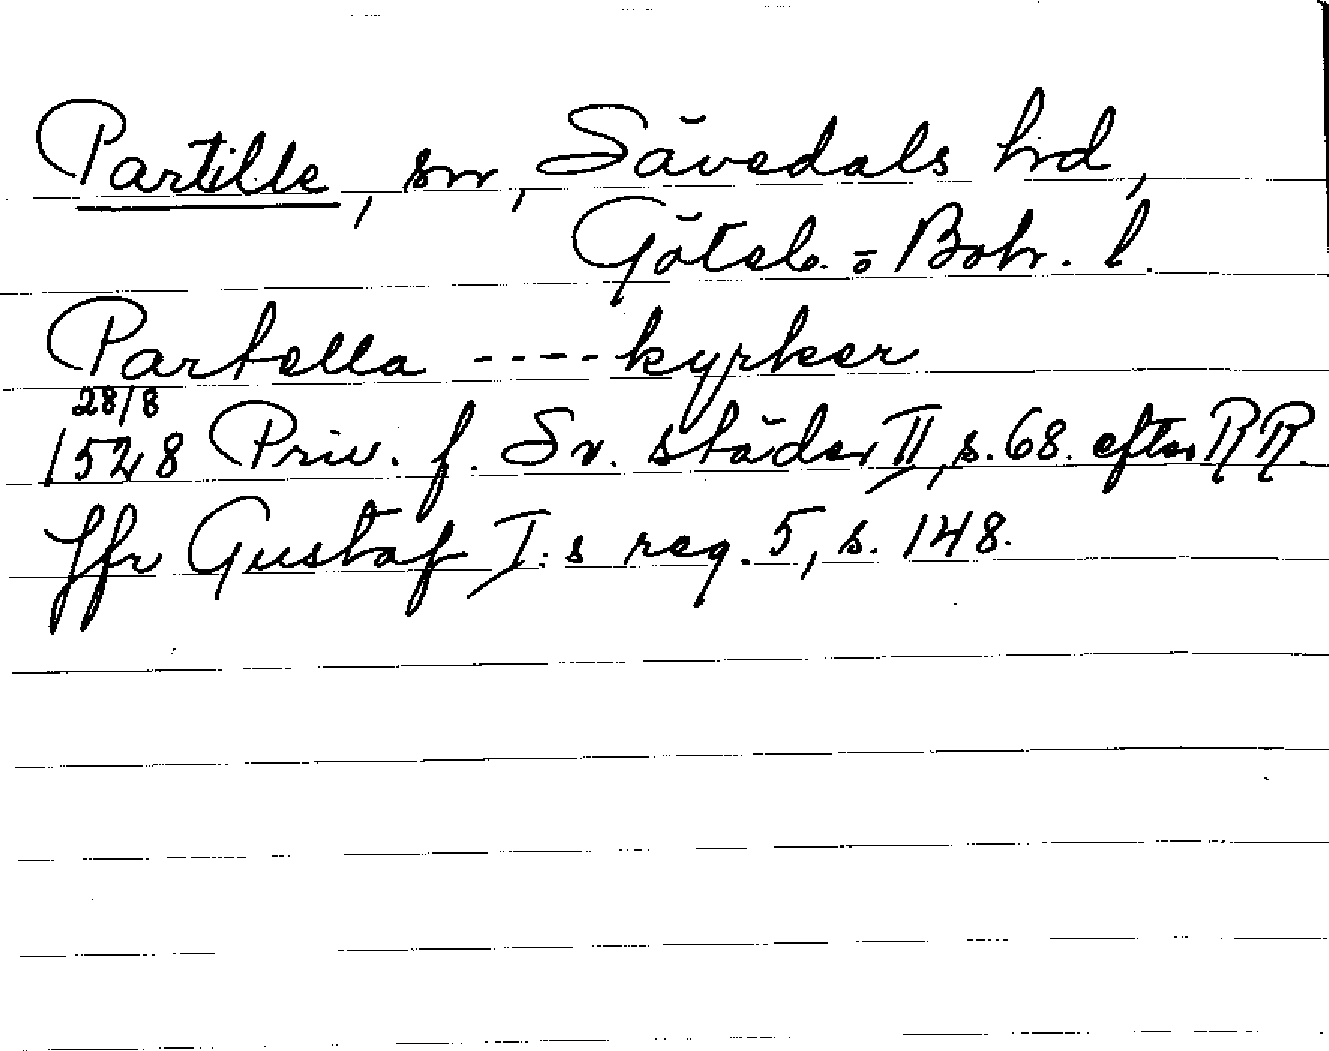 Partille, sn, Sävedals hrd,
Göteb. o Bohr. l.
Partella ---- kyrker
28/8
1528 Priv. f. Sv. städer II, s. 68. efter RR.
Jfr Gustaf I:s reg. 5, s. 148.